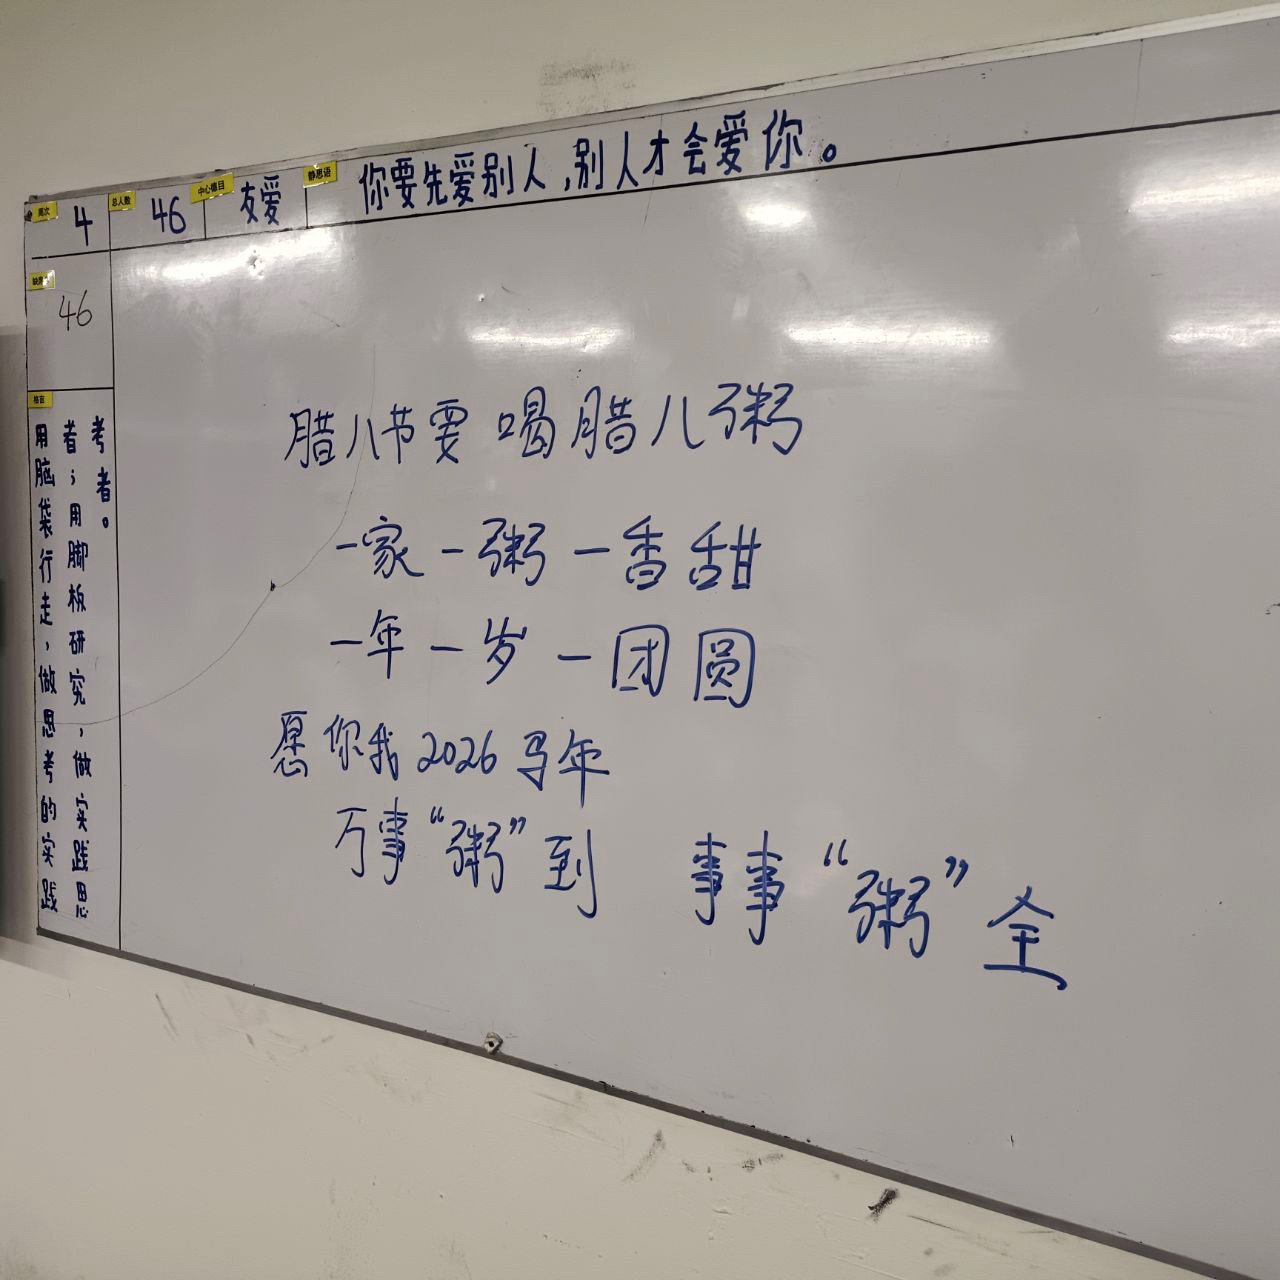 周次 4 总人数 46 中心德目 友爱 静思语 你要先爱别人,别人才会爱你。
46
格言
用脑袋行走,做思考的实践
者;用脚板研究,做实践思
考者。
腊八节要喝腊八粥
一家一粥一香甜
一年一岁一团圆
愿你我2026马年
万事“粥”到 事事“粥”全